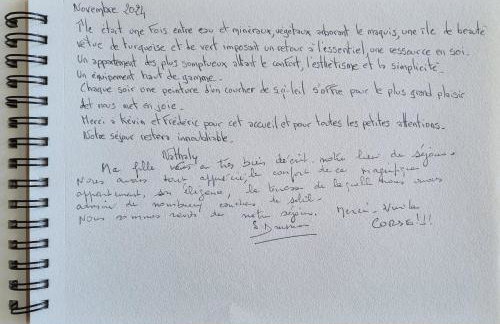 Novembre 2024
Il était une fois entre eau et minéraux, végétaux arborant le maquis, une île de beauté
vêtue de turquoise et de vert imposant un retour à l'essentiel, une ressource en soi.
Un appartement des plus somptueux alliant le confort, l'esthétisme et la simplicité.
Un équipement haut de gamme.
Chaque soir une peinture d'un coucher de soleil s'offre pour le plus grand plaisir
et nous met en joie.
Merci à Kévin et Frédéric pour cet accueil et pour toutes les petites attentions.
Notre séjour restera inoubliable.
Nathaly
Ma fille a très bien décrit notre lieu de séjour.
Nous avons tout apprécié, le confort de ce magnifique
appartement, son élégance, la terrasse de laquelle nous avons
admiré de nombreux couchers de soleil.
Nous sommes ravis de notre séjour. Merci. Vive la
CORSE!!!